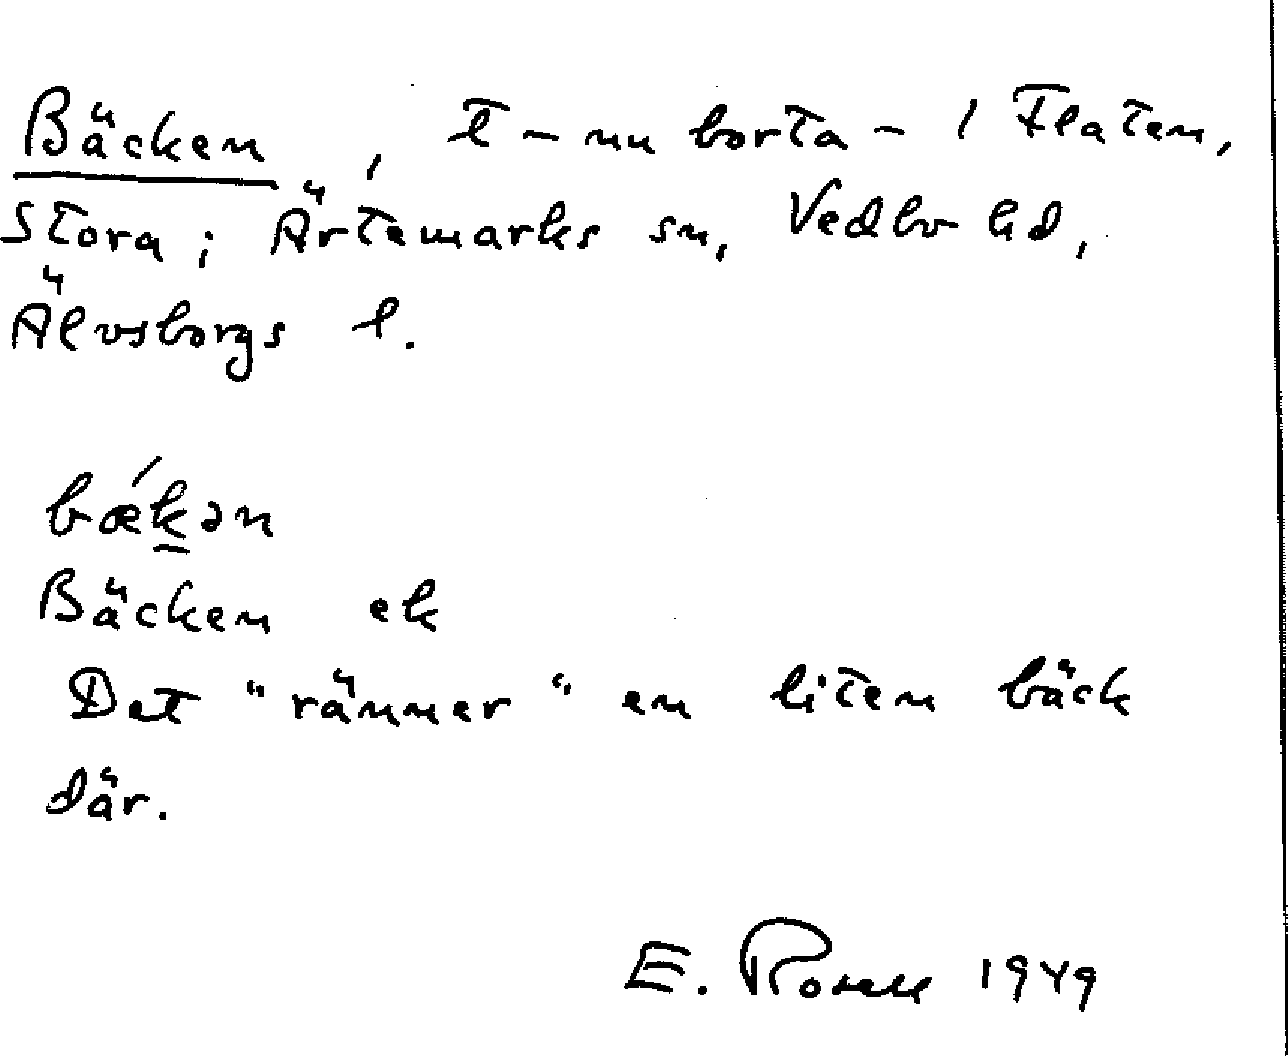 Bäcken, t – nu borta – / Flaten,
Stora; Ärtemarks sn, Vedbo hd,
Älvsborgs l.
bæ´k̲ən
Bäcken ek
Det "ränner" en liten bäck
där.
E. Rosell 1949